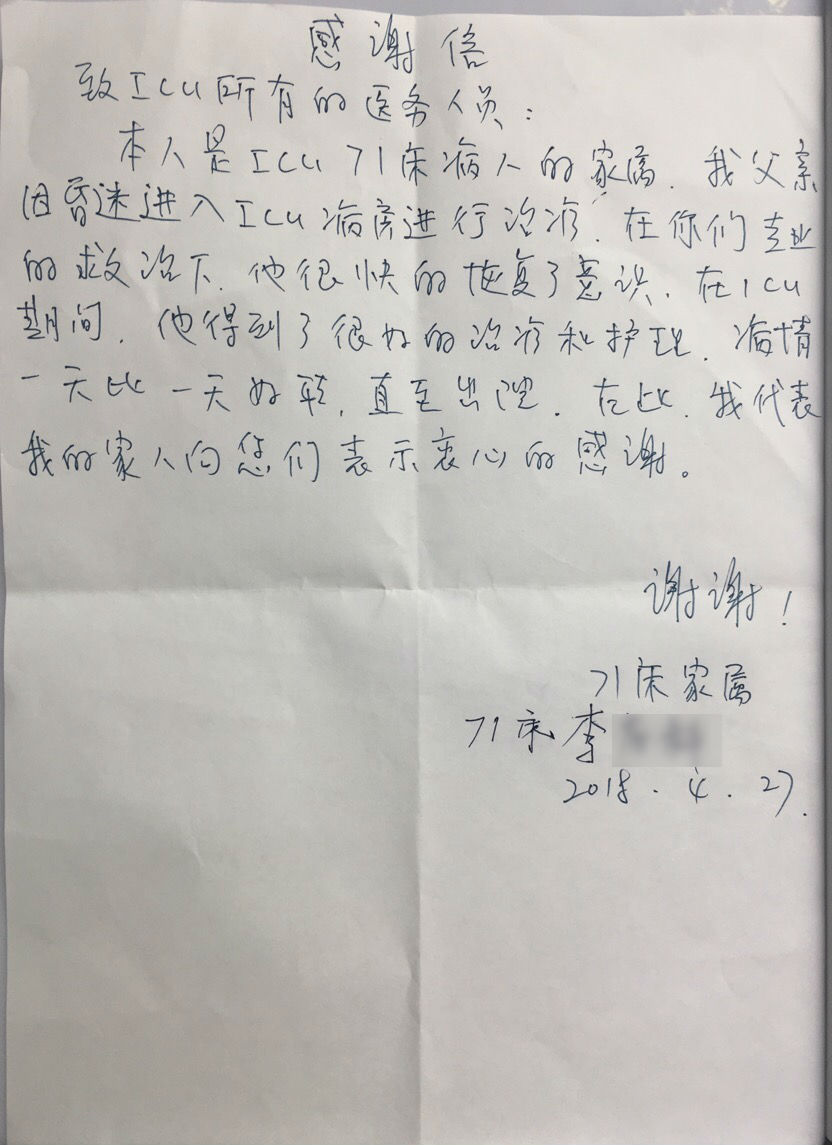 感谢信
致ICU所有的医务人员：
本人是ICU 71床病人的家属．我父亲
因昏迷进入ICU病房进行治疗．在你们专业
的救治下．他很快的恢复了意识．在ICU
期间．他得到了很好的治疗和护理．病情
一天比一天好转．直至出院．在此．我代表
我的家人向您们表示衷心的感谢。
谢谢！
71床家属
71床 李
2018．4．27．